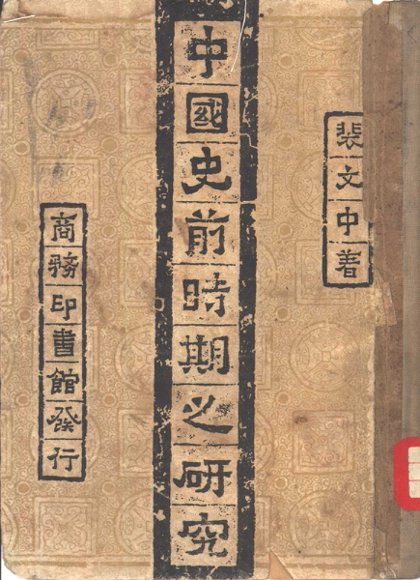 裴文中著
中國史前時期之研究
商務印書館發行